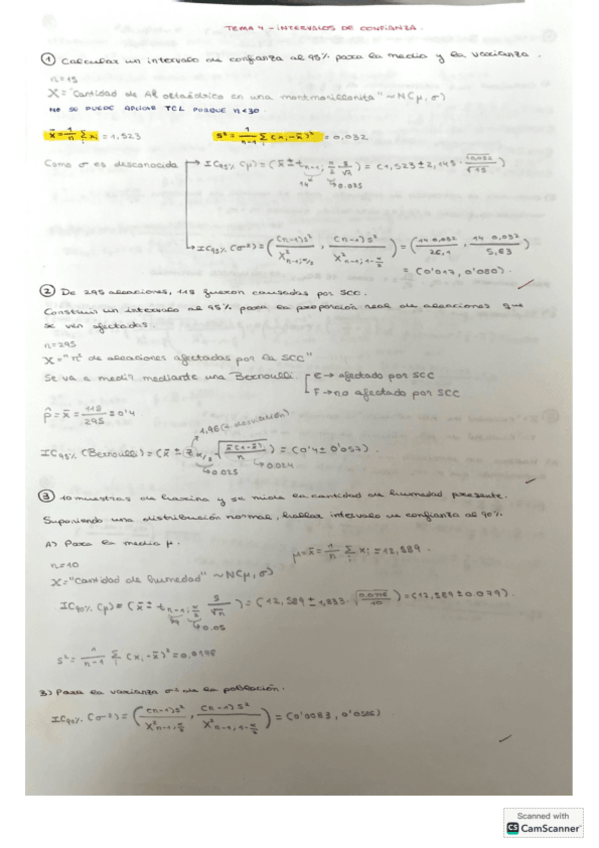 TEMA 4 - INTERVALOS DE CONFIANZA.
① Calcular un intervalo de confianza al 95% para la media y la varianza.
n=15
X = "Cantidad de Al octaédrico en una montmorillonita" ~ N(μ, σ)
NO SE PUEDE APLICAR TCL PORQUE n<30.
x̄ = 1/n Σ xᵢ = 1,523    S² = 1/(n-1) Σ (xᵢ - x̄)² = 0,032
Como σ es desconocida → IC95% (μ) = (x̄ ± t n-1; α/2 S/√n) = (1,523 ± 2,145 · √0,032/√15)
14    0.025
→ IC95% (σ²) = ((n-1)S²/X² n-1; α/2 , (n-1)S²/X² n-1; 1-α/2) = (14·0,032/26,1 , 14·0,032/5,63)
= (0'017, 0'080).
② De 295 aleaciones, 118 fueron causadas por SCC.
Construir un intervalo al 95% para la proporción real de aleaciones que
se ven afectadas.
n=295
X = "nº de aleaciones afectadas por la SCC"
Se va a medir mediante una Bernoulli. E → afectado por SCC
F → no afectado por SCC
p̂ = x̄ = 118/295 = 0'4
1.96
IC95% (Bernoulli) = (x̄ ± z α/2 √(x̄(1-x̄)/n)) = (0'4 ± 0'057).
0.025    0.024
③ 10 muestras de harina y se mide la cantidad de humedad presente.
Suponiendo una distribución normal, hallar intervalo de confianza al 90%.
A) Para la media μ.
n=10    μ = x̄ = 1/n Σ xᵢ = 12,589.
X = "Cantidad de humedad" ~ N(μ, σ)
IC90% (μ) = (x̄ ± t n-1; α/2 S/√n) = (12,589 ± 1,833 ·) = (12,589 ± 0.079).
0.05
S² = 1/(n-1) Σ (xᵢ - x̄)² =
B) Para la varianza σ² de la población.
IC90% (σ²) = ((n-1)S²/X² n-1, α/2 , (n-1)S²/X² n-1, 1-α/2) =
Scanned with
CS CamScanner